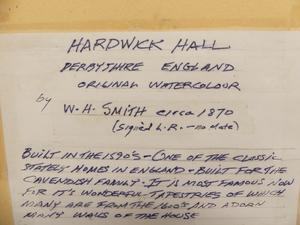 HARDWICK HALL
DERBYSHIRE ENGLAND
ORIGINAL WATERCOLOUR
by W. H. SMITH circa 1870
(Signed L.R. - no date)
BUILT IN THE 1590'S - ONE OF THE CLASSIC
STATELY HOMES IN ENGLAND - BUILT FOR THE
CAVENDISH FAMILY - IT IS MOST FAMOUS NOW
FOR IT'S WONDERFUL TAPESTRIES OF WHICH
MANY ARE FROM THE 1600'S AND ADORN
MANY WALLS OF THE HOUSE